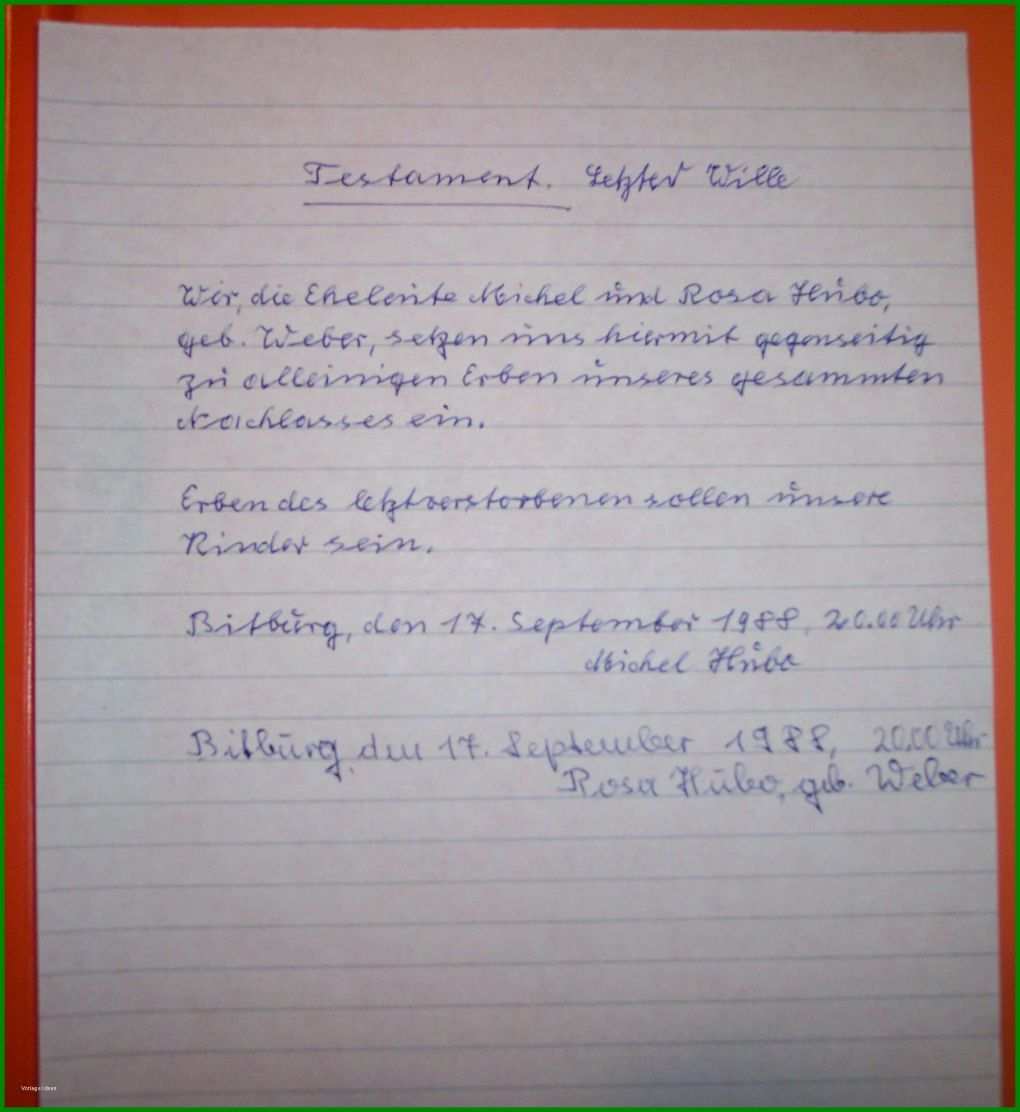 Testament. Letzter Wille
Wir, die Eheleute Michel und Rosa Hubo,
geb. Weber, setzen uns hiermit gegenseitig
zu alleinigen Erben unseres gesammten
Nachlasses ein.
Erben des letztverstorbenen sollen unsere
Kinder sein.
Bitburg, den 17. September 1988, 20.00 Uhr
Michel Hubo
Bitburg, den 17. September 1988, 20.00 Uhr
Rosa Hubo, geb. Weber